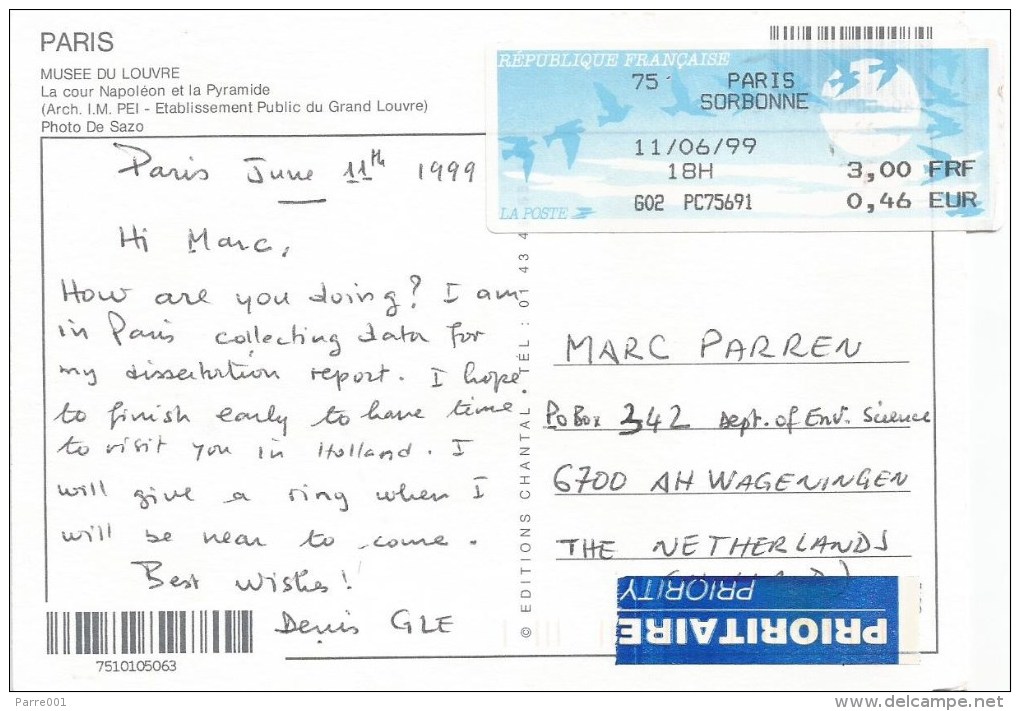 PARIS
MUSEE DU LOUVRE
La cour Napoléon et la Pyramide
(Arch. I.M. PEI - Etablissement Public du Grand Louvre)
Photo De Sazo
RÉPUBLIQUE FRANÇAISE
75 PARIS
SORBONNE
11/06/99
18H 3,00 FRF
G02 PC75691 0,46 EUR
LA POSTE
Paris June 11th 1999
Hi Marc,
How are you doing? I am
in Paris collecting data for
my dissertation report. I hope
to finish early to have time
to visit you in Holland. I
will give a ring when I
will be near to come.
Best Wishes!
Denis GLE
© EDITIONS CHANTAL . TÉL : 01 43 4
MARC PARREN
PO Box 342 Dept. of Env. Science
6700 AH WAGENINGEN
THE NETHERLANDS
PRIORITY
PRIORITAIRE
7510105063
Parre001
www.delcampe.net